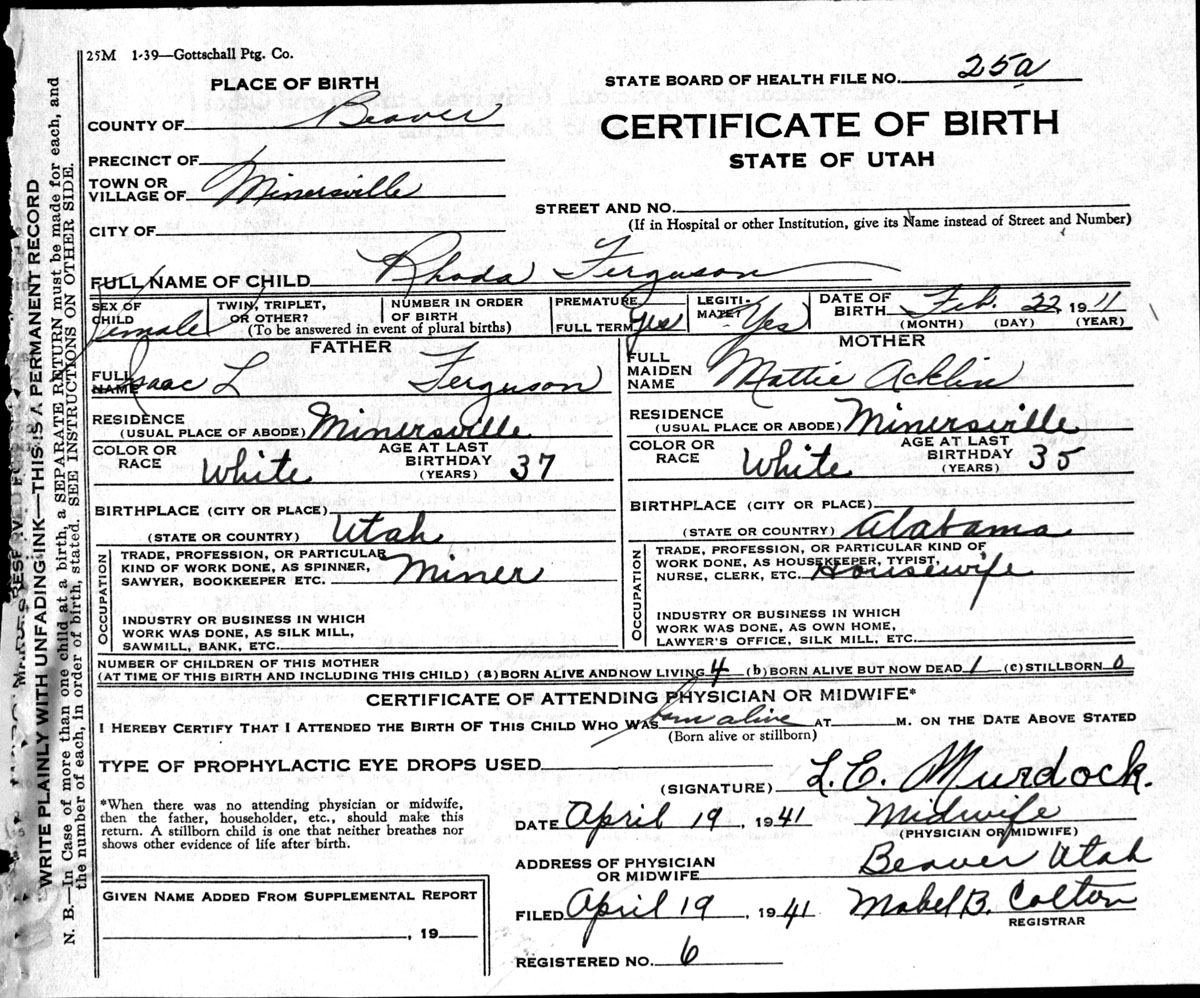 25M 1-39—Gottschall Ptg. Co.
PLACE OF BIRTH
STATE BOARD OF HEALTH FILE NO. 25a
COUNTY OF Beaver
CERTIFICATE OF BIRTH
PRECINCT OF
STATE OF UTAH
TOWN OR
VILLAGE OF Minersville
STREET AND NO.
(If in Hospital or other Institution, give its Name instead of Street and Number)
CITY OF
FULL NAME OF CHILD Rhoda Ferguson
SEX OF
CHILD female
TWIN, TRIPLET,
OR OTHER?
(To be answered in event of plural births)
NUMBER IN ORDER
OF BIRTH
PREMATURE
FULL TERM yes
LEGITI-
MATE? Yes
DATE OF
BIRTH Feb. 22, 1911
(MONTH) (DAY) (YEAR)
FATHER
FULL
NAME Isaac L Ferguson
RESIDENCE
(USUAL PLACE OF ABODE) Minersville
COLOR OR
RACE White
AGE AT LAST
BIRTHDAY 37
(YEARS)
BIRTHPLACE (CITY OR PLACE)
(STATE OR COUNTRY) Utah
OCCUPATION
TRADE, PROFESSION, OR PARTICULAR
KIND OF WORK DONE, AS SPINNER,
SAWYER, BOOKKEEPER ETC. Miner
INDUSTRY OR BUSINESS IN WHICH
WORK WAS DONE, AS SILK MILL,
SAWMILL, BANK, ETC.
MOTHER
FULL
MAIDEN
NAME Mattie Acklin
RESIDENCE
(USUAL PLACE OR ABODE) Minersville
COLOR OR
RACE White
AGE AT LAST
BIRTHDAY 35
(YEARS)
BIRTHPLACE (CITY OR PLACE)
(STATE OR COUNTRY) Alabama
OCCUPATION
TRADE, PROFESSION, OR PARTICULAR KIND OF
WORK DONE, AS HOUSEKEEPER, TYPIST,
NURSE, CLERK, ETC. Housewife
INDUSTRY OR BUSINESS IN WHICH
WORK WAS DONE, AS OWN HOME,
LAWYER'S OFFICE, SILK MILL, ETC.
NUMBER OF CHILDREN OF THIS MOTHER
(AT TIME OF THIS BIRTH AND INCLUDING THIS CHILD) (a) BORN ALIVE AND NOW LIVING 4 (b) BORN ALIVE BUT NOW DEAD 1 (c) STILLBORN 0
CERTIFICATE OF ATTENDING PHYSICIAN OR MIDWIFE*
I HEREBY CERTIFY THAT I ATTENDED THE BIRTH OF THIS CHILD WHO WAS born alive AT M. ON THE DATE ABOVE STATED
(Born alive or stillborn)
TYPE OF PROPHYLACTIC EYE DROPS USED
(SIGNATURE) L. E. Murdock.
*When there was no attending physician or midwife,
then the father, householder, etc., should make this
return. A stillborn child is one that neither breathes nor
shows other evidence of life after birth.
DATE April 19, 1941 Midwife
(PHYSICIAN OR MIDWIFE)
ADDRESS OF PHYSICIAN
OR MIDWIFE Beaver Utah
FILED April 19, 1941 Mabel B. Colton
REGISTRAR
REGISTERED NO. 6
GIVEN NAME ADDED FROM SUPPLEMENTAL REPORT
, 19
WRITE PLAINLY WITH UNFADING INK—THIS IS A PERMANENT RECORD
N. B.—In Case of more than one child at a birth, a SEPARATE RETURN must be made for each, and
the number of each, in order of birth, stated. SEE INSTRUCTIONS ON OTHER SIDE.